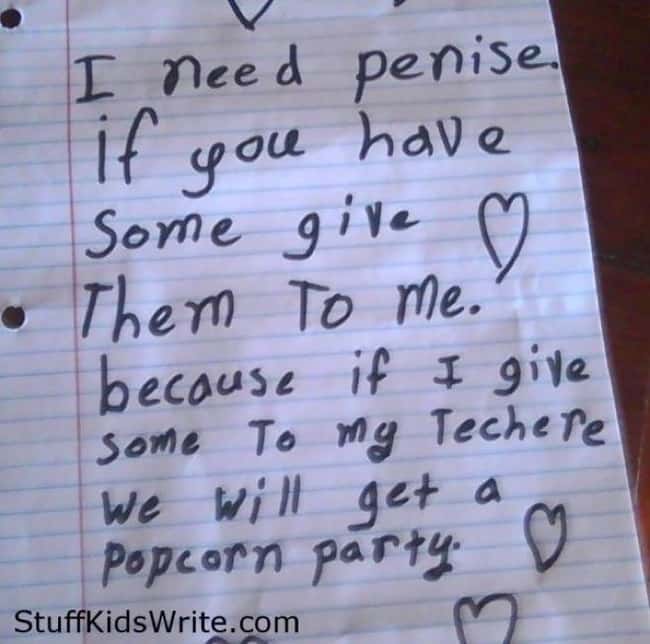 I need penise.
if you have
some give
Them To me.
because if I give
some To my Techere
we will get a
popcorn party.
StuffKidsWrite.com